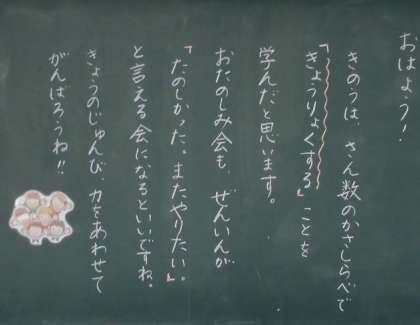 おはよう!
きのうは、さん数のかさしらべで
「きょうりょくする」ことを
学んだと思います。
おたのしみ会も、ぜんいんが
「たのしかった。またやりたい。」
と言える会になるといいですね。
きょうのじゅんび、力をあわせて
がんばろうね!!